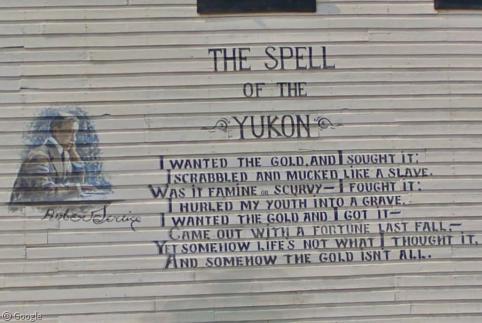 THE SPELL
OF THE
YUKON
I WANTED THE GOLD, AND I SOUGHT IT;
I SCRABBLED AND MUCKED LIKE A SLAVE.
WAS IT FAMINE OR SCURVY— I FOUGHT IT;
I HURLED MY YOUTH INTO A GRAVE.
I WANTED THE GOLD AND I GOT IT—
CAME OUT WITH A FORTUNE LAST FALL,—
YET SOMEHOW LIFE'S NOT WHAT I THOUGHT IT,
AND SOMEHOW THE GOLD ISNT ALL.
Robert Service
© Google